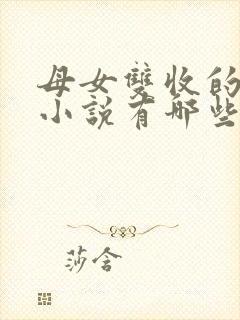 母女雙收的
小說有哪些
莎含